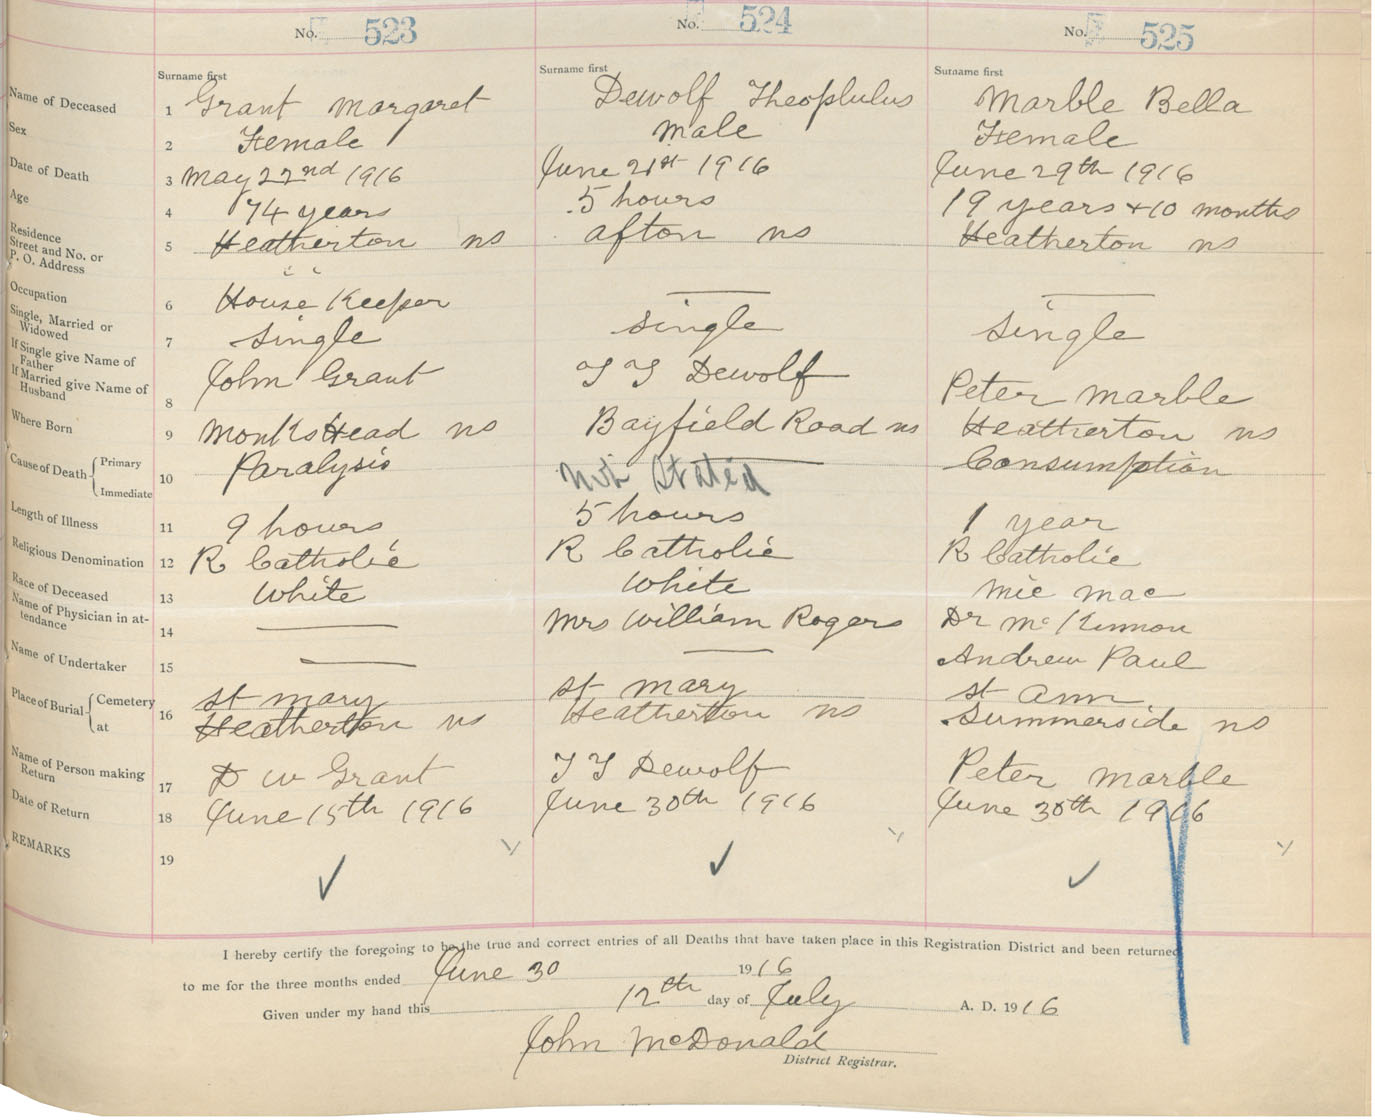 No. 523
No. 524
No. 525
Surname first
Surname first
Surname first
Name of Deceased 1 Grant Margaret Dewolf Theoplulus Marble Bella
Sex 2 Female Male Female
Date of Death 3 May 22nd 1916 June 21st 1916 June 29th 1916
Age 4 74 years 5 hours 19 years + 10 months
Residence
Street and No. or
P. O. Address 5 Heatherton ns afton ns Heatherton ns
" "
Occupation 6 House Keeper
Single, Married or
Widowed 7 Single Single Single
If Single give Name of
Father
If Married give Name of
Husband 8 John Grant T T Dewolf Peter Marble
Where Born 9 Monks Head ns Bayfield Road ns Heatherton ns
Cause of Death { Primary
Immediate 10 Paralysis Not Stated Consumption
Length of Illness 11 9 hours 5 hours 1 year
Religious Denomination 12 R Catholic R Catholic R Catholic
Race of Deceased 13 White White Mic mac
Name of Physician in at-
tendance 14 Mrs William Rogers Dr McKinnon
Name of Undertaker 15 Andrew Paul
Place of Burial { Cemetery St Mary St Mary St Ann
at 16 Heatherton ns Heatherton ns Summerside ns
Name of Person making
Return 17 D W Grant T T Dewolf Peter Marble
Date of Return 18 June 15th 1916 June 30th 1916 June 30th 1916
REMARKS 19
I hereby certify the foregoing to be the true and correct entries of all Deaths that have taken place in this Registration District and been returned
to me for the three months ended June 30 1916
Given under my hand this 12th day of July A. D. 1916
John McDonald
District Registrar.